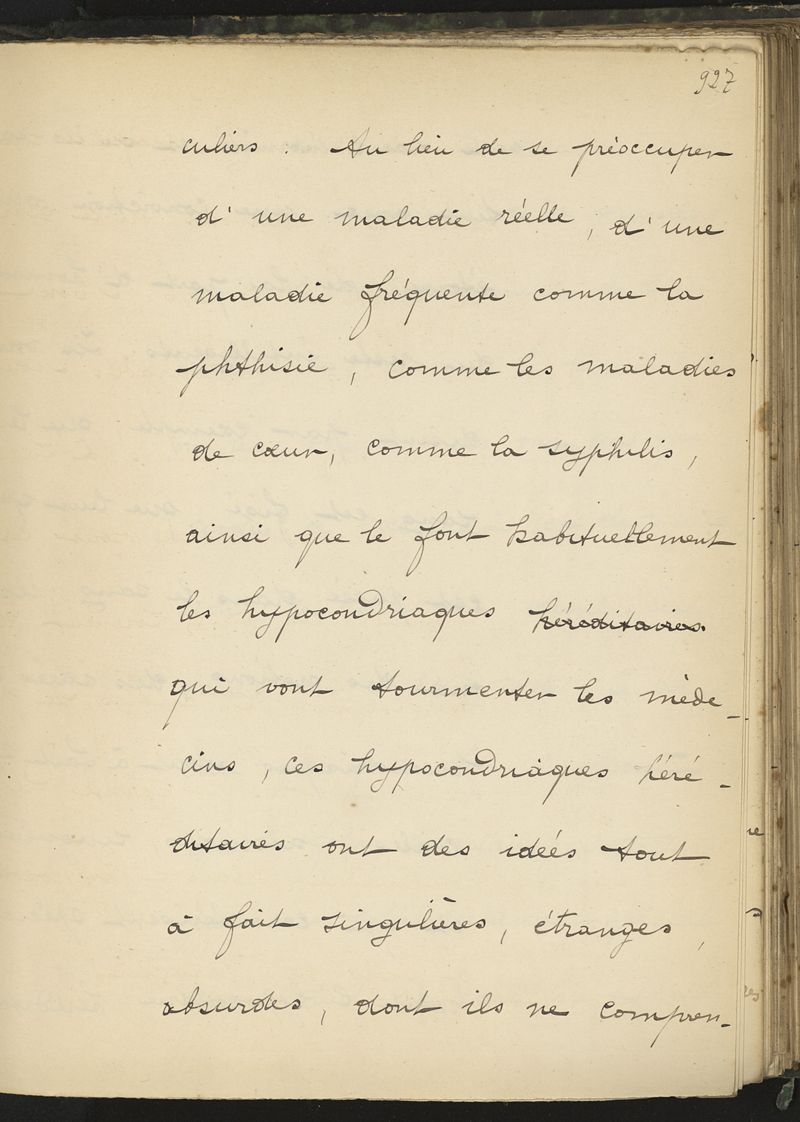 927
culiers. Au lieu de se préoccuper
d'une maladie réelle, d'une
maladie fréquente comme la
phthisie, comme les maladies
de cœur, comme la syphilis,
ainsi que le font habituellement
les hypocondriaques héréditaires
qui vont tourmenter les méde-
cins, ces hypocondriaques héré-
ditaires ont des idées tout
à fait singulières, étranges,
absurdes, dont ils ne compren-